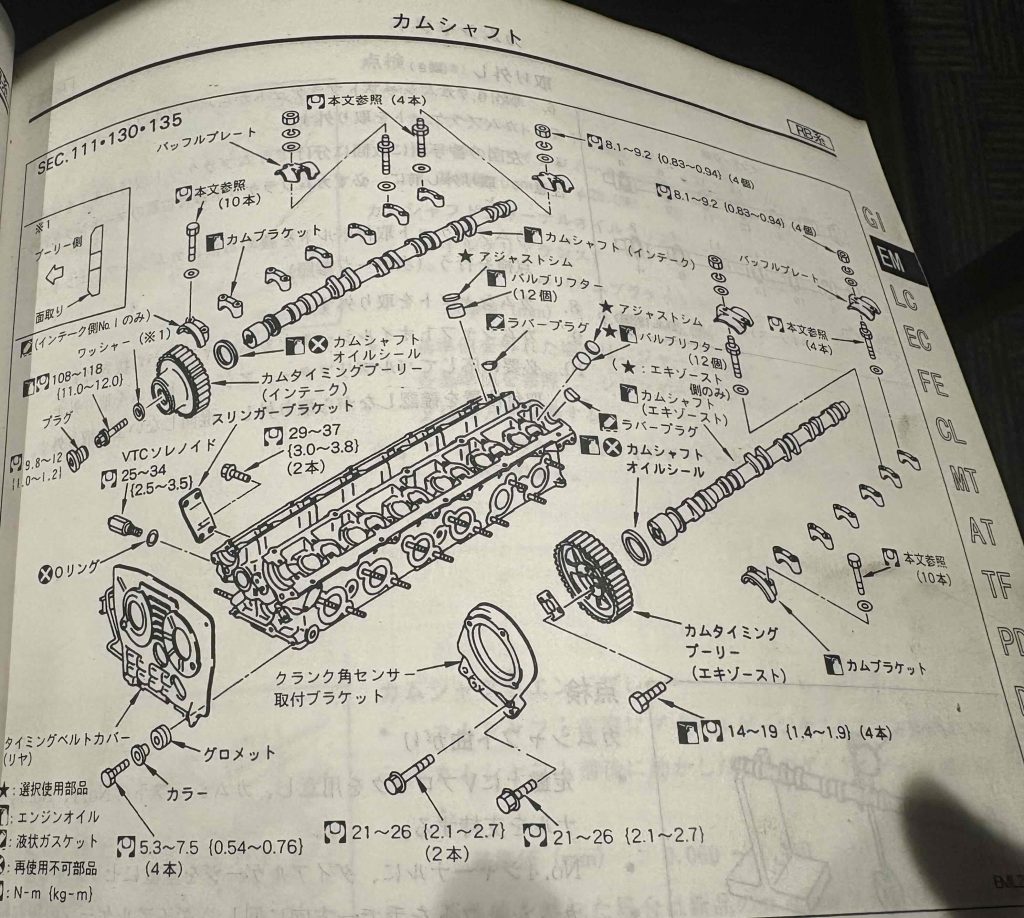 カムシャフト
RB系
SEC.111•130•135
本文参照 (4本)
バッフルプレート
8.1～9.2 {0.83～0.94} (4個)
8.1～9.2 {0.83～0.94} (4個)
本文参照
(10本)
カムブラケット
カムシャフト (インテーク)
バッフルプレート
※1
プーリー側
面取り
★ アジャストシム
バルブリフター
(12個)
ラバープラグ
★ アジャストシム
★ バルブリフター
(12個)
(★：エキゾースト
側のみ)
本文参照
(4本)
(インテーク側No.1のみ)
ワッシャー (※1)
カムシャフト
オイルシール
カムタイミングプーリー
(インテーク)
スリンガーブラケット
カムシャフト
(エキゾースト)
ラバープラグ
カムシャフト
オイルシール
108～118
{11.0～12.0}
プラグ
9.8～12
{1.0～1.2}
VTCソレノイド
25～34
{2.5～3.5}
29～37
{3.0～3.8}
(2本)
Oリング
本文参照
(10本)
カムタイミング
プーリー
(エキゾースト)
カムブラケット
クランク角センサー
取付ブラケット
14～19 {1.4～1.9} (4本)
タイミングベルトカバー
(リヤ)
グロメット
カラー
5.3～7.5 {0.54～0.76}
(4本)
21～26 {2.1～2.7}
(2本)
21～26 {2.1～2.7}
★：選択使用部品
：エンジンオイル
：液状ガスケット
：再使用不可部品
：N-m {kg-m}
GI
EM
LC
EC
FE
CL
MT
AT
TF
PD